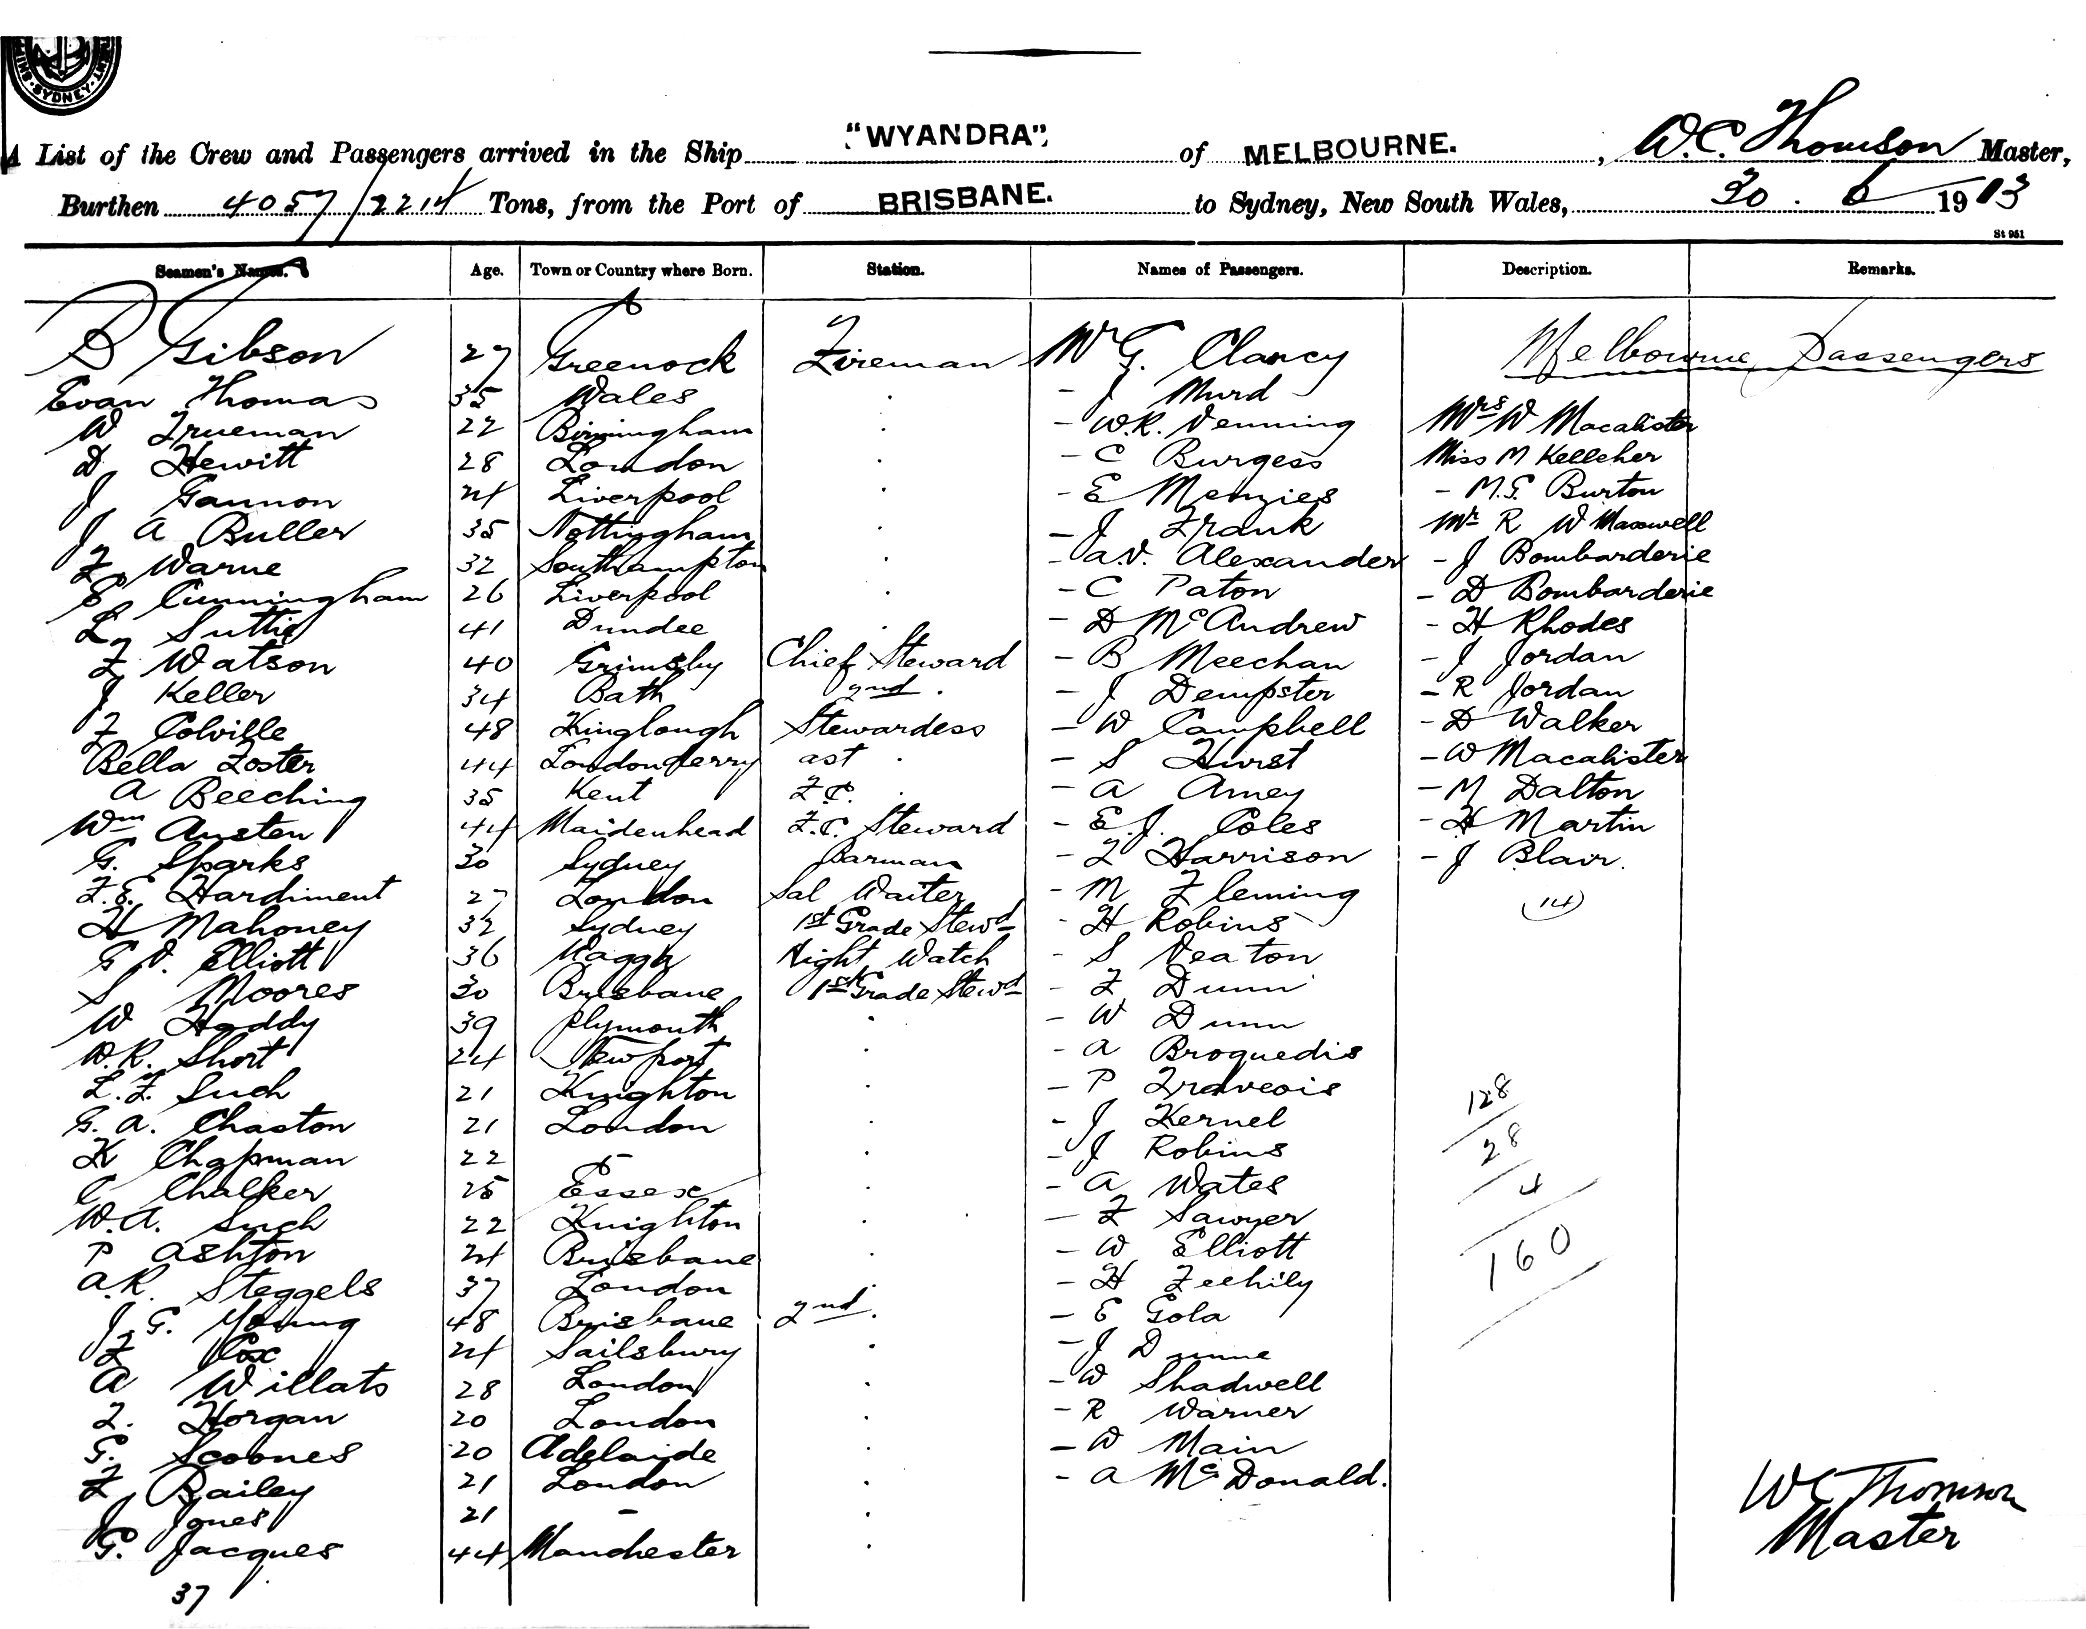 SYDNEY
A List of the Crew and Passengers arrived in the Ship "WYANDRA", of MELBOURNE. , W.C. Thomson Master,
Burthen 4057/2214 Tons, from the Port of BRISBANE. to Sydney, New South Wales, 30. 6 1913
St 951
Seamen's Names. Age. Town or Country where Born. Station. Names of Passengers. Description. Remarks.
B Gibson 27 Greenock Fireman Mr G. Clancy Melbourne Passengers
Evan Thomas 35 Wales . - J Murd
W Trueman 22 Birmingham . - W.R. Venning Mrs W Macalister
D Hewitt 28 London . - C Burgess Miss M Kelleher
J Gannon 24 Liverpool . - E Menzies - M.G. Burton
J A Buller 35 Nottingham . - J Frank Mr R W Maxwell
F Warne 32 Southampton . - A.V. Alexander - J Bombarderie
S Cunningham 26 Liverpool . - C Paton - D Bombarderie
L Suttie 41 Dundee . - D McAndrew - H Rhodes
F Watson 40 Grimsby Chief Steward - B Meechan - J Jordan
J Keller 34 Bath 2nd . - J Dempster - R Jordan
F Colville 48 Kinglough Stewardess - W Campbell - D Walker
Bella Foster 44 Londonderry ast . - S Hurst - W Macalister
A Beeching 35 Kent F.C. . - A Amey - M Dalton
Wm Austen 44 Maidenhead F.C. Steward - E.J. Coles - H Martin
G. Sparks 30 Sydney Barman - F Harrison - J Blair.
F.E. Hardiment 27 London Sal Waiter - M Fleming (14)
H Mahoney 32 Sydney 1st Grade Stewd - H Robins
G V. Elliott 36 Wagga Night Watch - S Veaton
S Moores 30 Brisbane 1st Grade Stewd - F Dunn
W Hoddy 39 Plymouth . - W Dunn
W.R. Short 24 Newport . - A Broquedis
L.F. Such 21 Knighton . - P Fraveois 128
G. A. Chaston 21 London . - J Kernel 28
K Chapman 22 - - J Robins
C Chalker 25 Essex . - A Wates 4
W.A. Such 22 Knighton . - F Sawyer
P Ashton 24 Brisbane . - W Elliott 160
A.R. Steggels 37 London . - H Feehily
J. G. Young 48 Brisbane 2nd . - E Gola
F Cox 24 Sailsbury . - J Dunne
A Willats 28 London . - W Shadwell
F. Horgan 20 London . - R Warner
G. Scoones 20 Adelaide . - W Main
F Bailey 21 London . - A McDonald.
J Jones 21 - .
G. Jacques 44 Manchester .
37
W C Thomson
Master